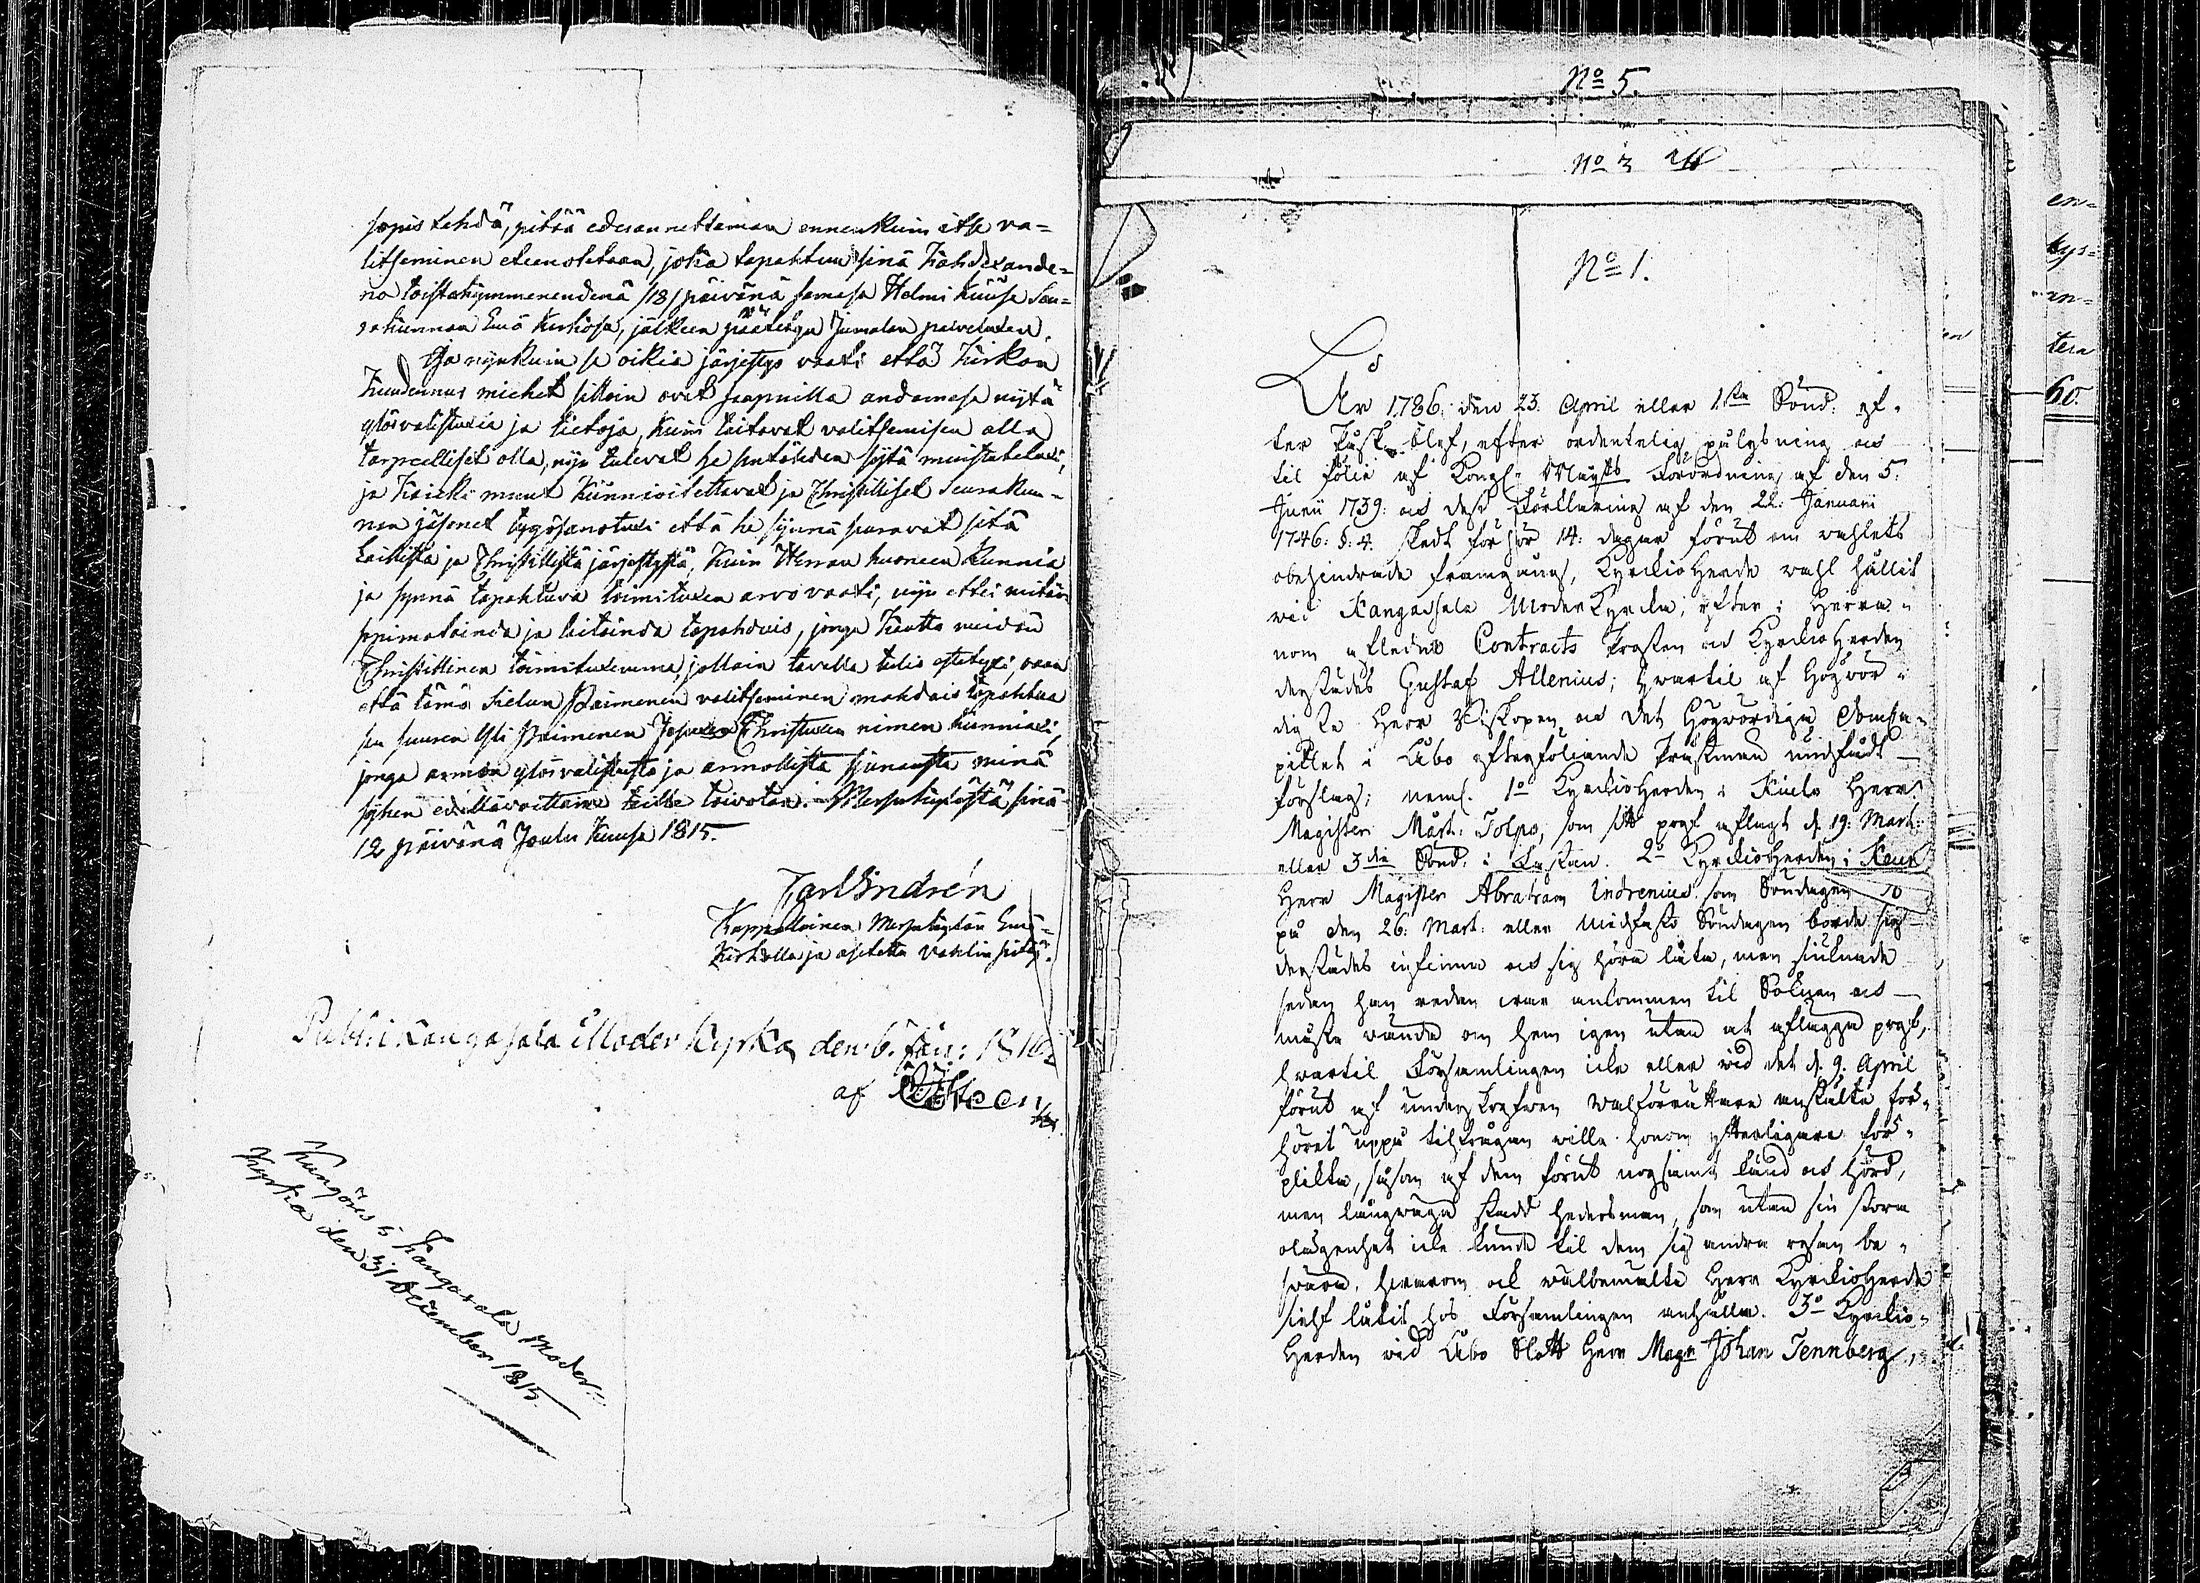 sopis tehdä, pitää edesannettaman ennenkuin itse va=
litseminen eteenotetaan, joka tapahtuu sinä Kahdexande=
na toistakymmenendenä /18/ päivänä samasa Helmi Kuusa Seu=
rakunnan Emä Kirkosa, jälkeen päätetyn Jumalan palveluxen.
Ja nijnkuin se oikia järjestys vaati että Kirkon
Kuudennus miehet silloin ovat saapuilla andamasa nijtä
ylösvalistuxia ja tietoja, kuin taitavat valitsemisen alla
tarpeelliset olla, nijn tulevat he sentähden sijtä muistutetuxi,
ja Kaicki muut Kunnioitettavat ja Christilliset Seurakun=
nan jäsenet tygösanotuxi että he sijnnä seuravat sitä
laillista ja Christillistä järjestystä, Kuin Herran huoneen Kunnia
ja sijnnä tapahtuva toimituxen arvo vaati, nijn ettei mitän
sopimatoinda ja laitoinda tapahduis, jonga Kautta meidän
Christillinen toimituxemme, jollain tavalla tulis estetyxi, vaan
että tämä Sielun Paimenen valitseminen mahdais tapahtua
sen suuren Yli Paimenen Jesuxen Christuxen nimen Kunniaxi,
jonga armon ylösvalistusta ja armollista siunausta minä
sijhen edellävoittaen teille toivotan. Messukylästä sinä
12 päivänä Joulu Kuusa 1815.
Carl Indrén
Kappalainen Messukylän Emä=
Kirkolla ja asetettu Vaalin pitäjä.
Publ: i Kangasala Moder Kyrka den 6. Jan: 1816
af Steen
Kungöres i Kangasala Moder=
Kyrka den 31 December 1815.
No 5.
No 3
No 1.
År 1786. den 23. April eller 1:sta Sönd. ef=
ter Påsk blef, efter ordentelig pålysning och
til följe af Kongl. Maij:ts Förordning af den 5.
Junii 1739. och dess Förklaring af den 22. Januari
1746. §. 4. skedt förhör 14. dagar förut om wahlets
obehindrade framgång, Kyrckio Herde wahl hållit
wid Kangasala Moder Kyrcka, efter i Herra=
nom afledne Contracts Prosten och Kyrckio Herden
derstädes Gustaf Allenius; hwartil af Högwör=
digste Herr Biskopen och det Högwördiga Domca=
pitlet i Åbo efterföljande Prästmän undfådt
förslag; neml. 1o Kyrckio Herden i Kiulo Herr
Magister Mårt: Tolpo, som sitt prof aflagt d. 19. Mart.
eller 3:die Sönd. i Fastan. 2o Kyrckio Herden i Keuru
Herr Magister Abraham Indrenius som Söndagen 10
på den 26. Mart. eller Midfasto Söndagen borde sig
derstädes infinna och sig höra låta, men siuknade
sedan han redan war ankommen til Soknen och
måste wända om hem igen utan at aflägga prof,
hwartil Församlingen icke eller wid det d. 9. April
förut af underskrefwen Walförrättare anstälta för=
höret uppå tilfrågan wille honom ytterligare för=
plikta, såsom af dem förut nogsamt känd och hörd,
men långwäga stadd hedersman, som utan sin stora
olägenhet icke kunde til dem sig andra resan be=
swära, hwarom ock wälbemälte Herr Kyrckio Herde
sielf låtit hos Församlingen anhålla. 3o Kyrckio=
Herden wid Åbo Slott Herr Mag:r Johan Tennberg,
en=
kys=
an=
tera
60.